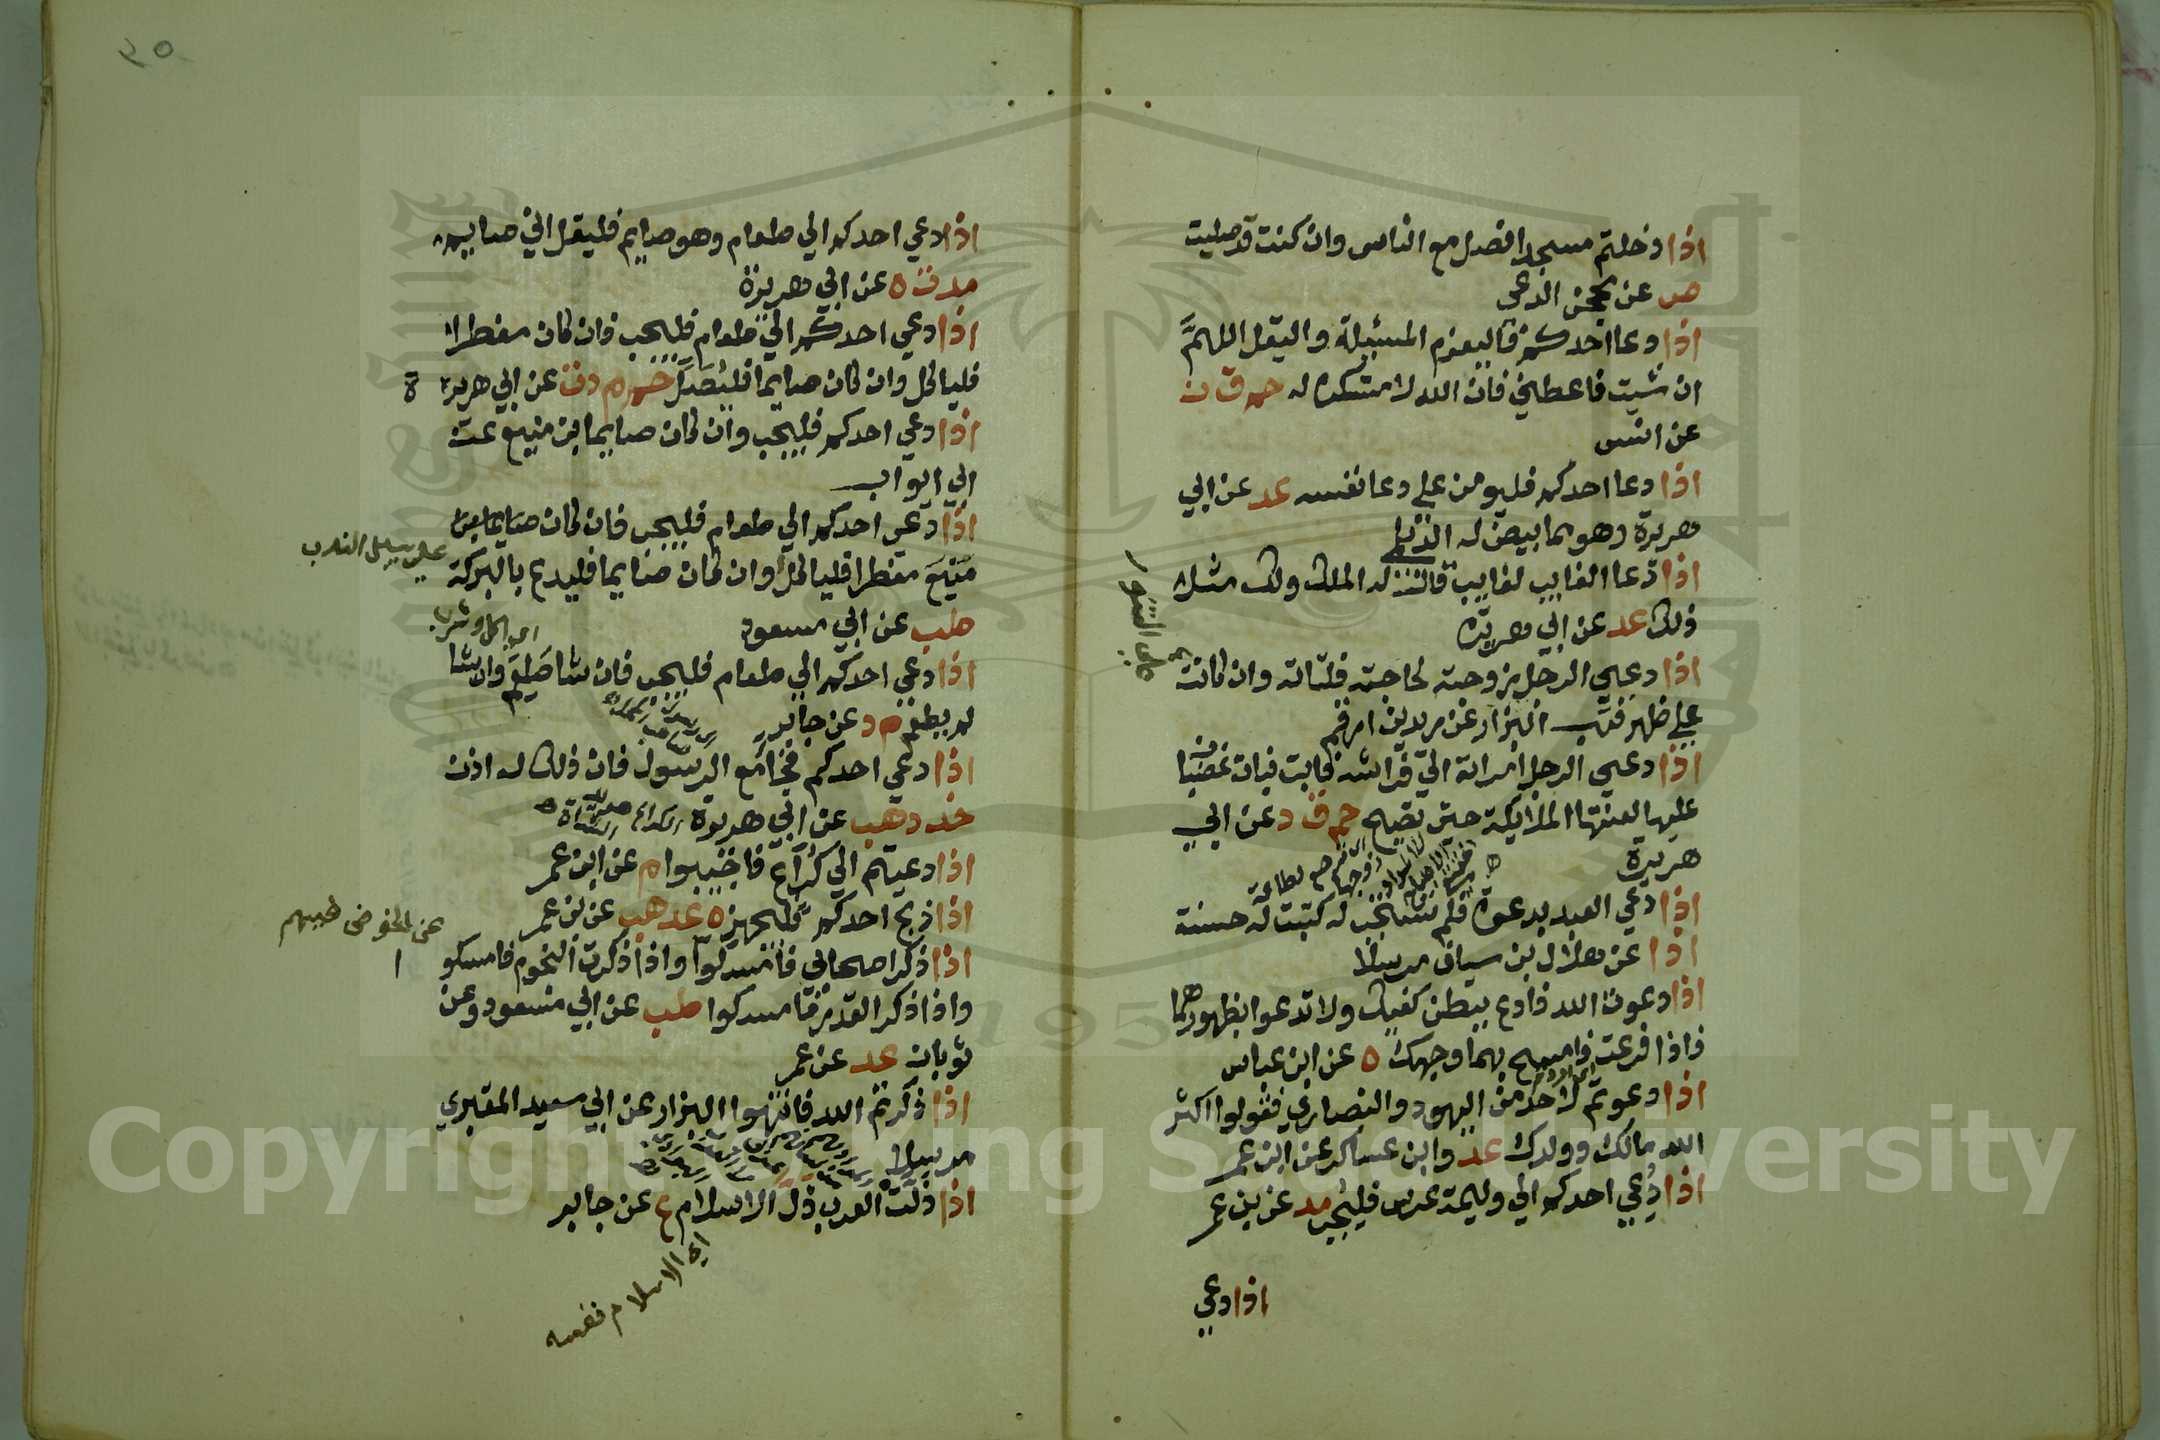 اذا دخلتم مسجدا فصل مع الناس وان كنت قد صليت
ص عن محجن الدعى
اذا دعا احدكم فاليعزم المسئلة واليقل اللهم
ان شيت فاعطني فان الله لا مستكره له حم ق ن
عن انس
اذا دعا احدكم فليومن علي دعا نفسه عد عن ابي
هريرة وهو مما بيض له الديلي
اذا دعا الغايب لغايب قال له الملك ولك مثل
ذلك عد عن ابي هريرة
اذا دعي الرجل زوجته لحاجته فلتاته وان كانت
علي ظهر قتب البزار عن زيد بن ارقم
على التنور
اذا دعي الرجل امراته الي فراشه فابت فبات غضبان
عليها لعنتها الملايكة حتى تصبح حم ق د عن ابي
هريرة
اذا دعي العبد بدعوة فلم تستجب له كتبت له حسنة
اذا عن هلال بن سياف مرسلا
اذا دعوت الله فادع ببطن كفيك ولا تدعوا بظهورهما
فاذا فرغت فامسح بهما وجهك ه عن ابن عباس
اذا دعوتم لاحد من اليهود والنصاري فقولوا اكثر
الله مالك وولدك عد وابن عساكر عن ابن عمر
اذا دُعي احدكم الي وليمة عرس فليجب مد عن بن عمر
اذا دعي
اذا دعي احدكم الي طعام وهو صايم فليقل اني صايم
مد ت ه عن ابي هريرة
اذا دعي احدكم الي طعام فليجب فان كان مفطرا
فلياكل وان كان صايما فليصل حم م د ت عن ابي هريرة
اذا دعي احدكم فليجب وان كان صايما ابن منيع عن
ابي ايواب
اذا دعى احدكم الي طعام فليجب فان كان صايما بن
على سبيل الندب
منيع مفطرا فلياكل وان كان صايما فليدع بالبركة
طب عن ابي مسعود
اي اكل وشرب
اذا دعي احدكم الي طعام فليجب فان شا طعم وان شا
لم يطعم م د عن جابر
اذا دعي احدكم فجا مع الرسول فان ذلك له اذن
خد د هب عن ابي هريرة
اذا دعيتم الي كراع فاجيبوا م عن ابن عمر
اذا ذبح احدكم فليجهز ه عد هب عن بن عمر
عن الخوض فيهم
اذا ذكر اصحابي فامسكوا واذا ذكرت النجوم فامسكو
ا
واذا ذكر القدر فامسكوا طب عن ابي مسعود وعن
ثوبان عد عن عمر
اذا ذكرتم الله فانتهوا البزار عن ابي سعيد المقبري
مرسلا
اذا ذلت العرب ذل الاسلام ع عن جابر
اي الاسلام نفسه
Copyright © King Saud University
1957